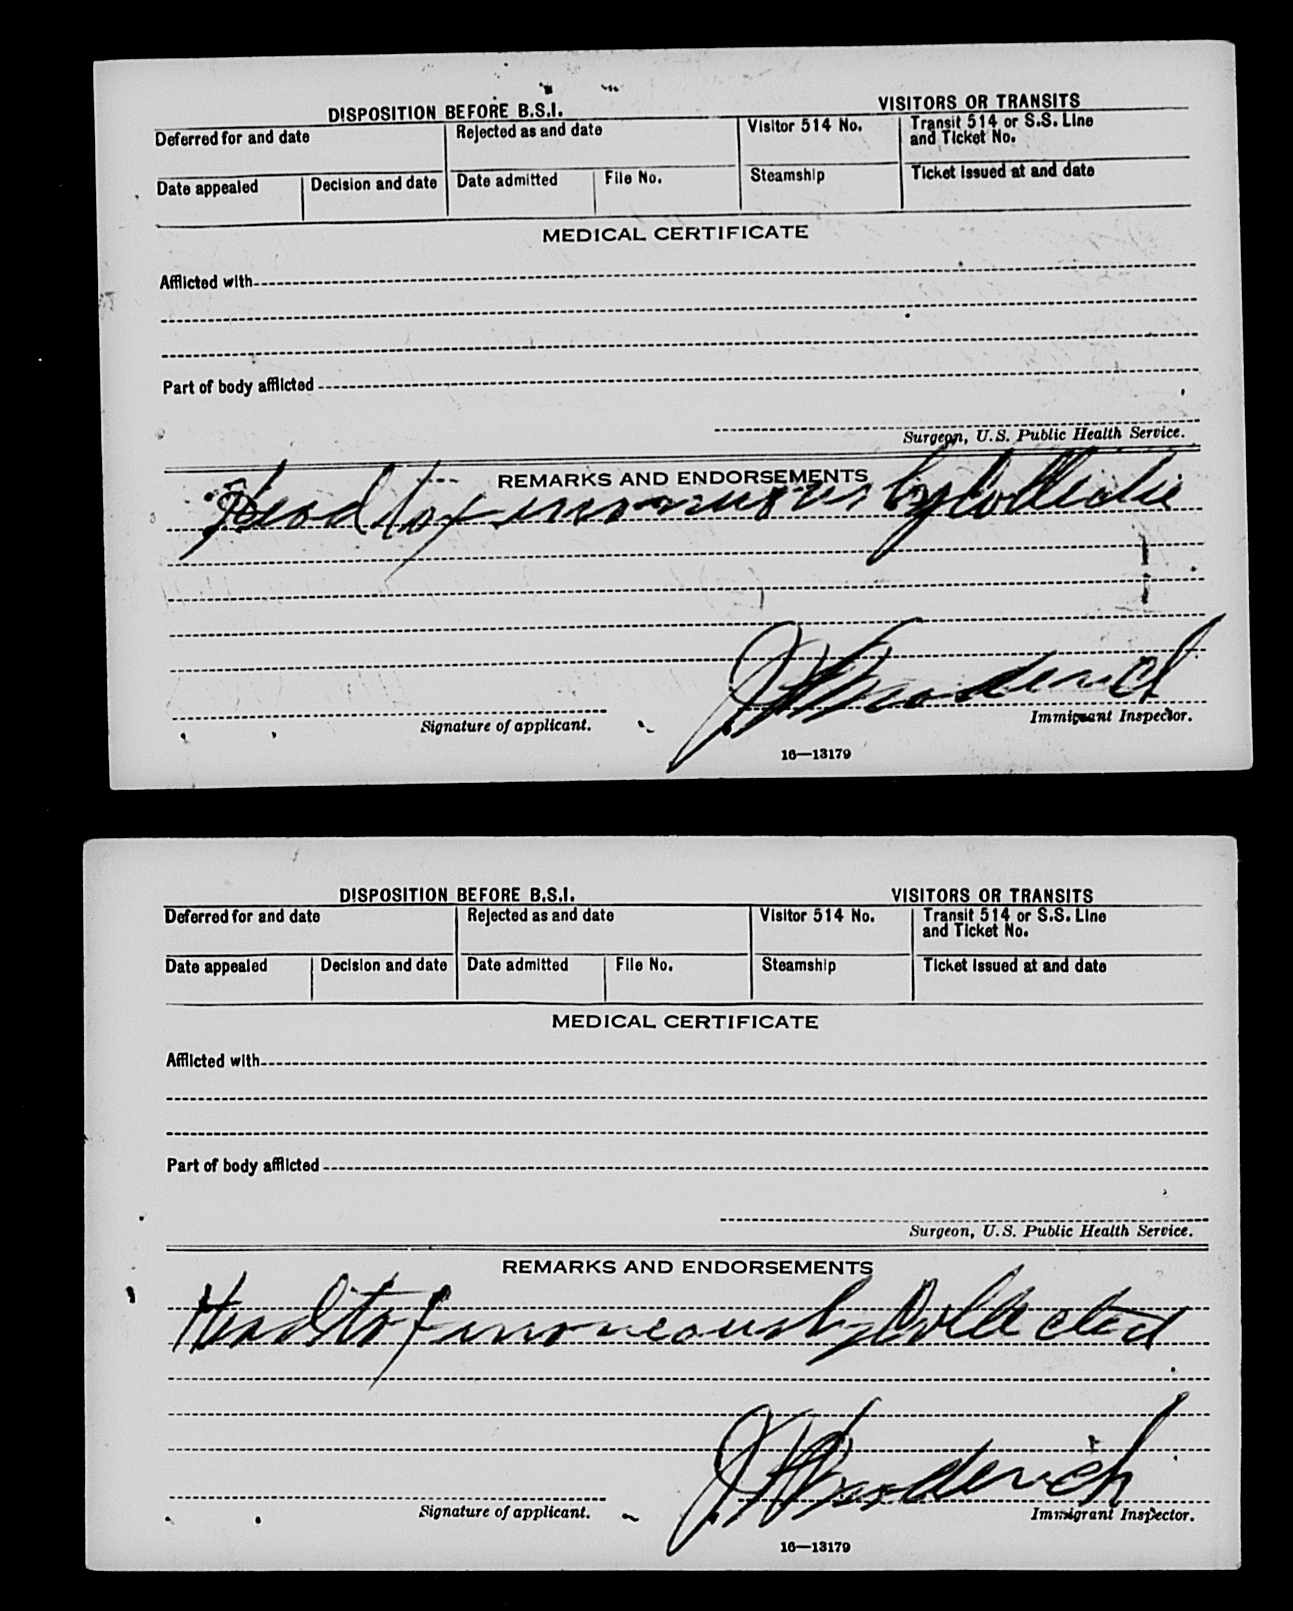 DISPOSITION BEFORE B.S.I.
VISITORS OR TRANSITS
Deferred for and date
Rejected as and date
Visitor 514 No.
Transit 514 or S.S. Line
and Ticket No.
Date appealed
Decision and date
Date admitted
File No.
Steamship
Ticket issued at and date
MEDICAL CERTIFICATE
Afflicted with
Part of body afflicted
Surgeon, U.S. Public Health Service.
REMARKS AND ENDORSEMENTS
Head tax erroneously
Signature of applicant.
Immigrant Inspector.
16—13179
DISPOSITION BEFORE B.S.I.
VISITORS OR TRANSITS
Deferred for and date
Rejected as and date
Visitor 514 No.
Transit 514 or S.S. Line
and Ticket No.
Date appealed
Decision and date
Date admitted
File No.
Steamship
Ticket issued at and date
MEDICAL CERTIFICATE
Afflicted with
Part of body afflicted
Surgeon, U.S. Public Health Service.
REMARKS AND ENDORSEMENTS
Head tax erroneously Collected
Signature of applicant.
Immigrant Inspector.
16—13179